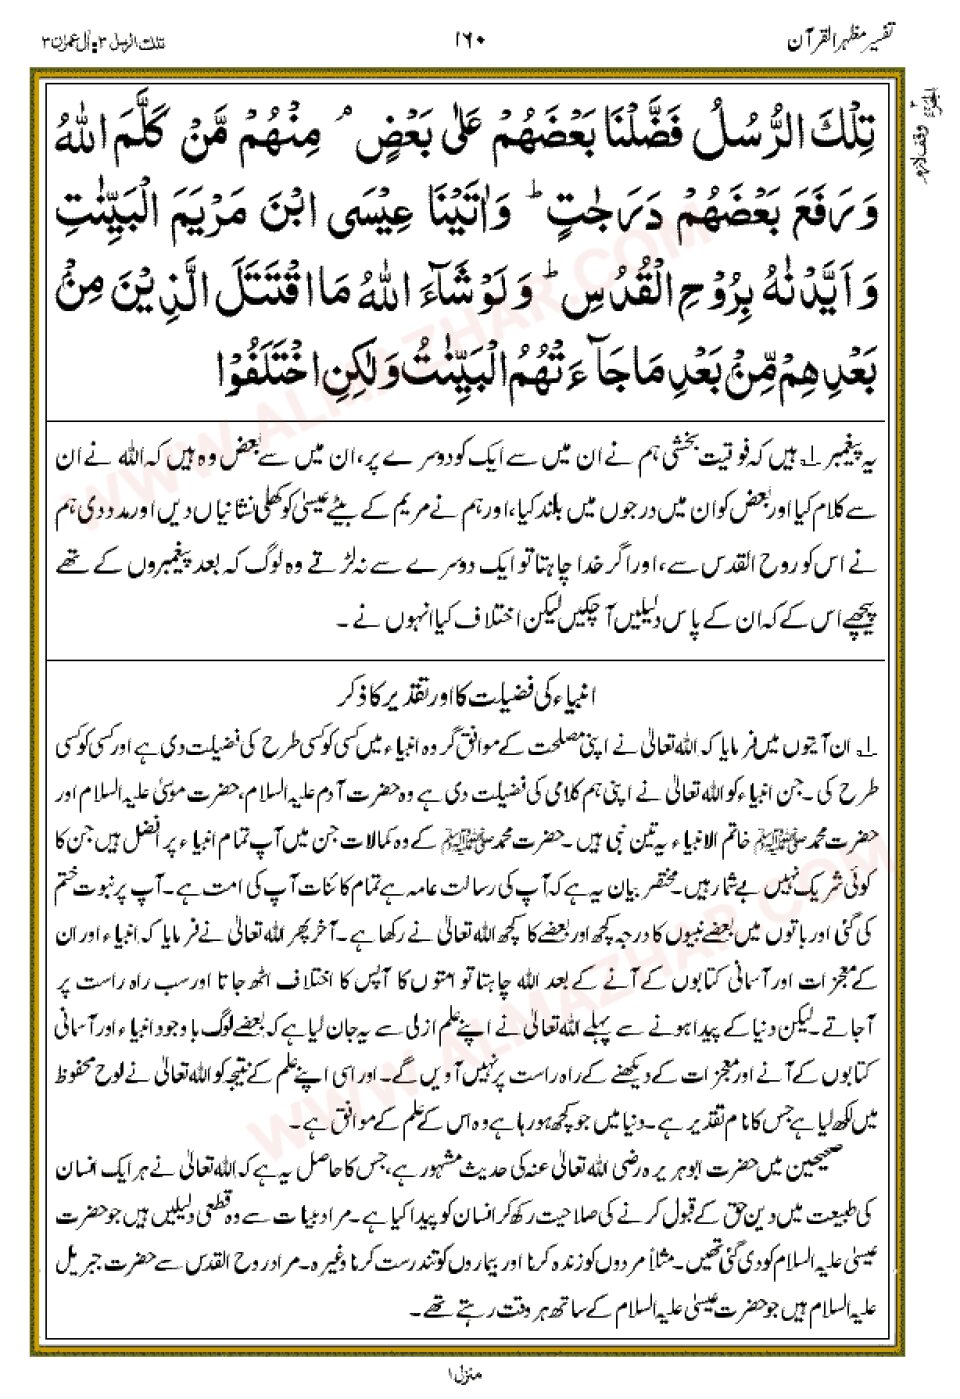 تفسیر مظہر القرآن
۱۶۰
تلك الرسل ۳: اٰل عمران ۳
الجزء ۳
وقف لازم
تِلْكَ الرُّسُلُ فَضَّلْنَا بَعْضَهُمْ عَلٰى بَعْضٍ ۘ مِنْهُمْ مَّنْ كَلَّمَ اللّٰهُ
وَرَفَعَ بَعْضَهُمْ دَرَجٰتٍ ؕ وَاٰتَيْنَا عِيْسَى ابْنَ مَرْيَمَ الْبَيِّنٰتِ
وَاَيَّدْنٰهُ بِرُوْحِ الْقُدُسِ ؕ وَلَوْ شَآءَ اللّٰهُ مَا اقْتَتَلَ الَّذِيْنَ مِنْۢ
بَعْدِهِمْ مِّنْۢ بَعْدِ مَا جَآءَتْهُمُ الْبَيِّنٰتُ وَلٰكِنِ اخْتَلَفُوْا
یہ پیغمبر ۱؎ ہیں کہ فوقیت بخشی ہم نے ان میں سے ایک کو دوسرے پر، ان میں سے بعض وہ ہیں کہ اللہ نے ان
سے کلام کیا اور بعض کو ان میں درجوں میں بلند کیا، اور ہم نے مریم کے بیٹے عیسیٰ کو کھلی نشانیاں دیں اور مدد دی ہم
نے اس کو روح القدس سے، اور اگر خدا چاہتا تو ایک دوسرے سے نہ لڑتے وہ لوگ کہ بعد پیغمبروں کے تھے
پیچھے اس کے کہ ان کے پاس دلیلیں آچکیں لیکن اختلاف کیا انہوں نے ۔
انبیاء کی فضیلت کا اور تقدیر کا ذکر
۱؎ ان آیتوں میں فرمایا کہ اللہ تعالیٰ نے اپنی مصلحت کے موافق گروہ انبیاء میں کسی کو کسی طرح کی فضیلت دی ہے اور کسی کو کسی
طرح کی ۔ جن انبیاء کو اللہ تعالیٰ نے اپنی ہم کلامی کی فضیلت دی ہے وہ حضرت آدم علیہ السلام، حضرت موسیٰ علیہ السلام اور
حضرت محمد ﷺ خاتم الانبیاء یہ تین نبی ہیں ۔ حضرت محمد ﷺ کے وہ کمالات جن میں آپ تمام انبیاء پر افضل ہیں جن کا
کوئی شریک نہیں بے شمار ہیں۔ مختصر بیان یہ ہے کہ آپ کی رسالت عامہ ہے تمام کائنات آپ کی امت ہے ۔ آپ پر نبوت ختم
کی گئی اور باتوں میں بعضے نبیوں کا درجہ کچھ اور بعضے کا کچھ اللہ تعالیٰ نے رکھا ہے۔ آخر پھر اللہ تعالیٰ نے فرمایا کہ انبیاء اور ان
کے معجزات اور آسمانی کتابوں کے آنے کے بعد اللہ چاہتا تو امتوں کا آپس کا اختلاف اٹھ جاتا اور سب راہ راست پر
آجاتے۔ لیکن دنیا کے پیدا ہونے سے پہلے اللہ تعالیٰ نے اپنے علم ازلی سے یہ جان لیا ہے کہ بعضے لوگ باوجود انبیاء اور آسمانی
کتابوں کے آنے اور معجزات کے دیکھنے کے راہ راست پر نہیں آویں گے۔ اور اسی اپنے علم کے نتیجہ کو اللہ تعالیٰ نے لوح محفوظ
میں لکھ لیا ہے جس کا نام تقدیر ہے ۔ دنیا میں جو کچھ ہو رہا ہے وہ اس کے علم کے موافق ہے۔
صحیحین میں حضرت ابوہریرہ رضی اللہ تعالیٰ عنہ کی حدیث مشہور ہے، جس کا حاصل یہ ہے کہ اللہ تعالیٰ نے ہر ایک انسان
کی طبیعت میں دین حق کے قبول کرنے کی صلاحیت رکھ کر انسان کو پیدا کیا ہے۔ مراد بینات سے وہ قطعی دلیلیں ہیں جو حضرت
عیسیٰ علیہ السلام کو دی گئی تھیں ۔ مثلاً مردوں کو زندہ کرنا اور بیماروں کو تندرست کرنا وغیرہ۔ مراد روح القدس سے حضرت جبریل
علیہ السلام ہیں جو حضرت عیسیٰ علیہ السلام کے ساتھ ہر وقت رہتے تھے۔
منزل ۱
WWW.ALMAZHAR.COM
WWW.ALMAZHAR.COM